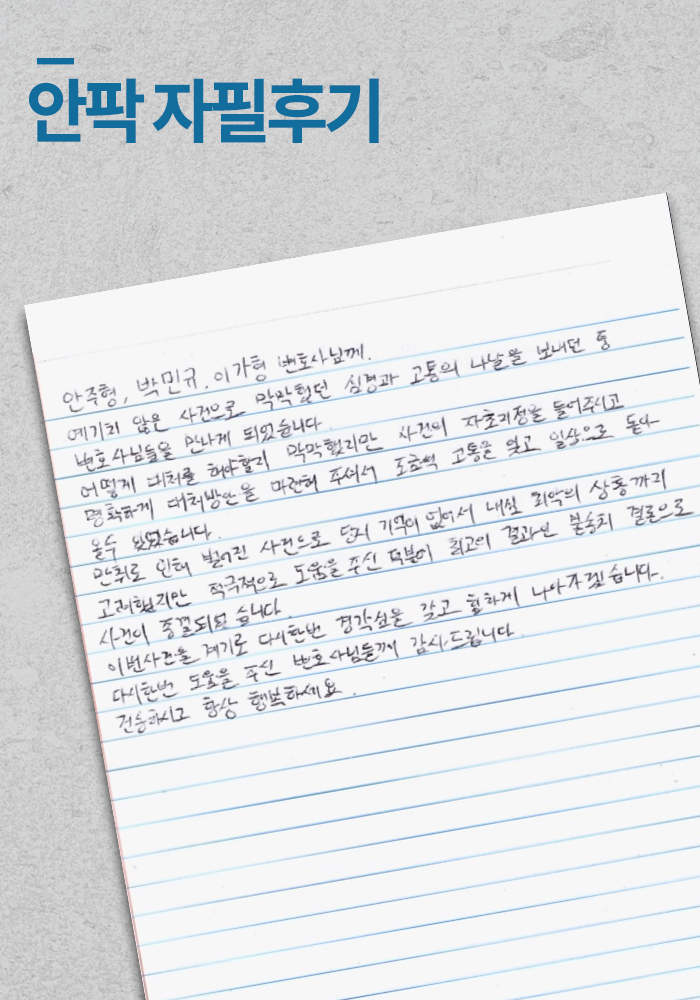 안팍 자필후기
안주형, 박민규, 이가형 변호사님께.
예기치 않은 사건으로 막막했던 심경과 고통의 나날을 보내던 중
변호사님들을 만나게 되었습니다.
어떻게 대처를 해야할지 막막했지만 사건의 자초지정을 들어주시고
명확하게 대처방안을 마련해 주셔서 조금씩 고통을 잊고 일상으로 돌아
올수 있었습니다.
만취로 인해 벌어진 사건으로 단지 기억이 없어서 내심 최악의 상황까지
고려했지만 적극적으로 도움을 주신 덕분에 최고의 결과인 불송치 결론으로
사건이 종결되었습니다.
이번사건을 계기로 다시한번 경각심을 갖고 힘하게 나아가겠습니다.
다시한번 도움을 주신 변호사님들께 감사드립니다.
건승하시고 항상 행복하세요.